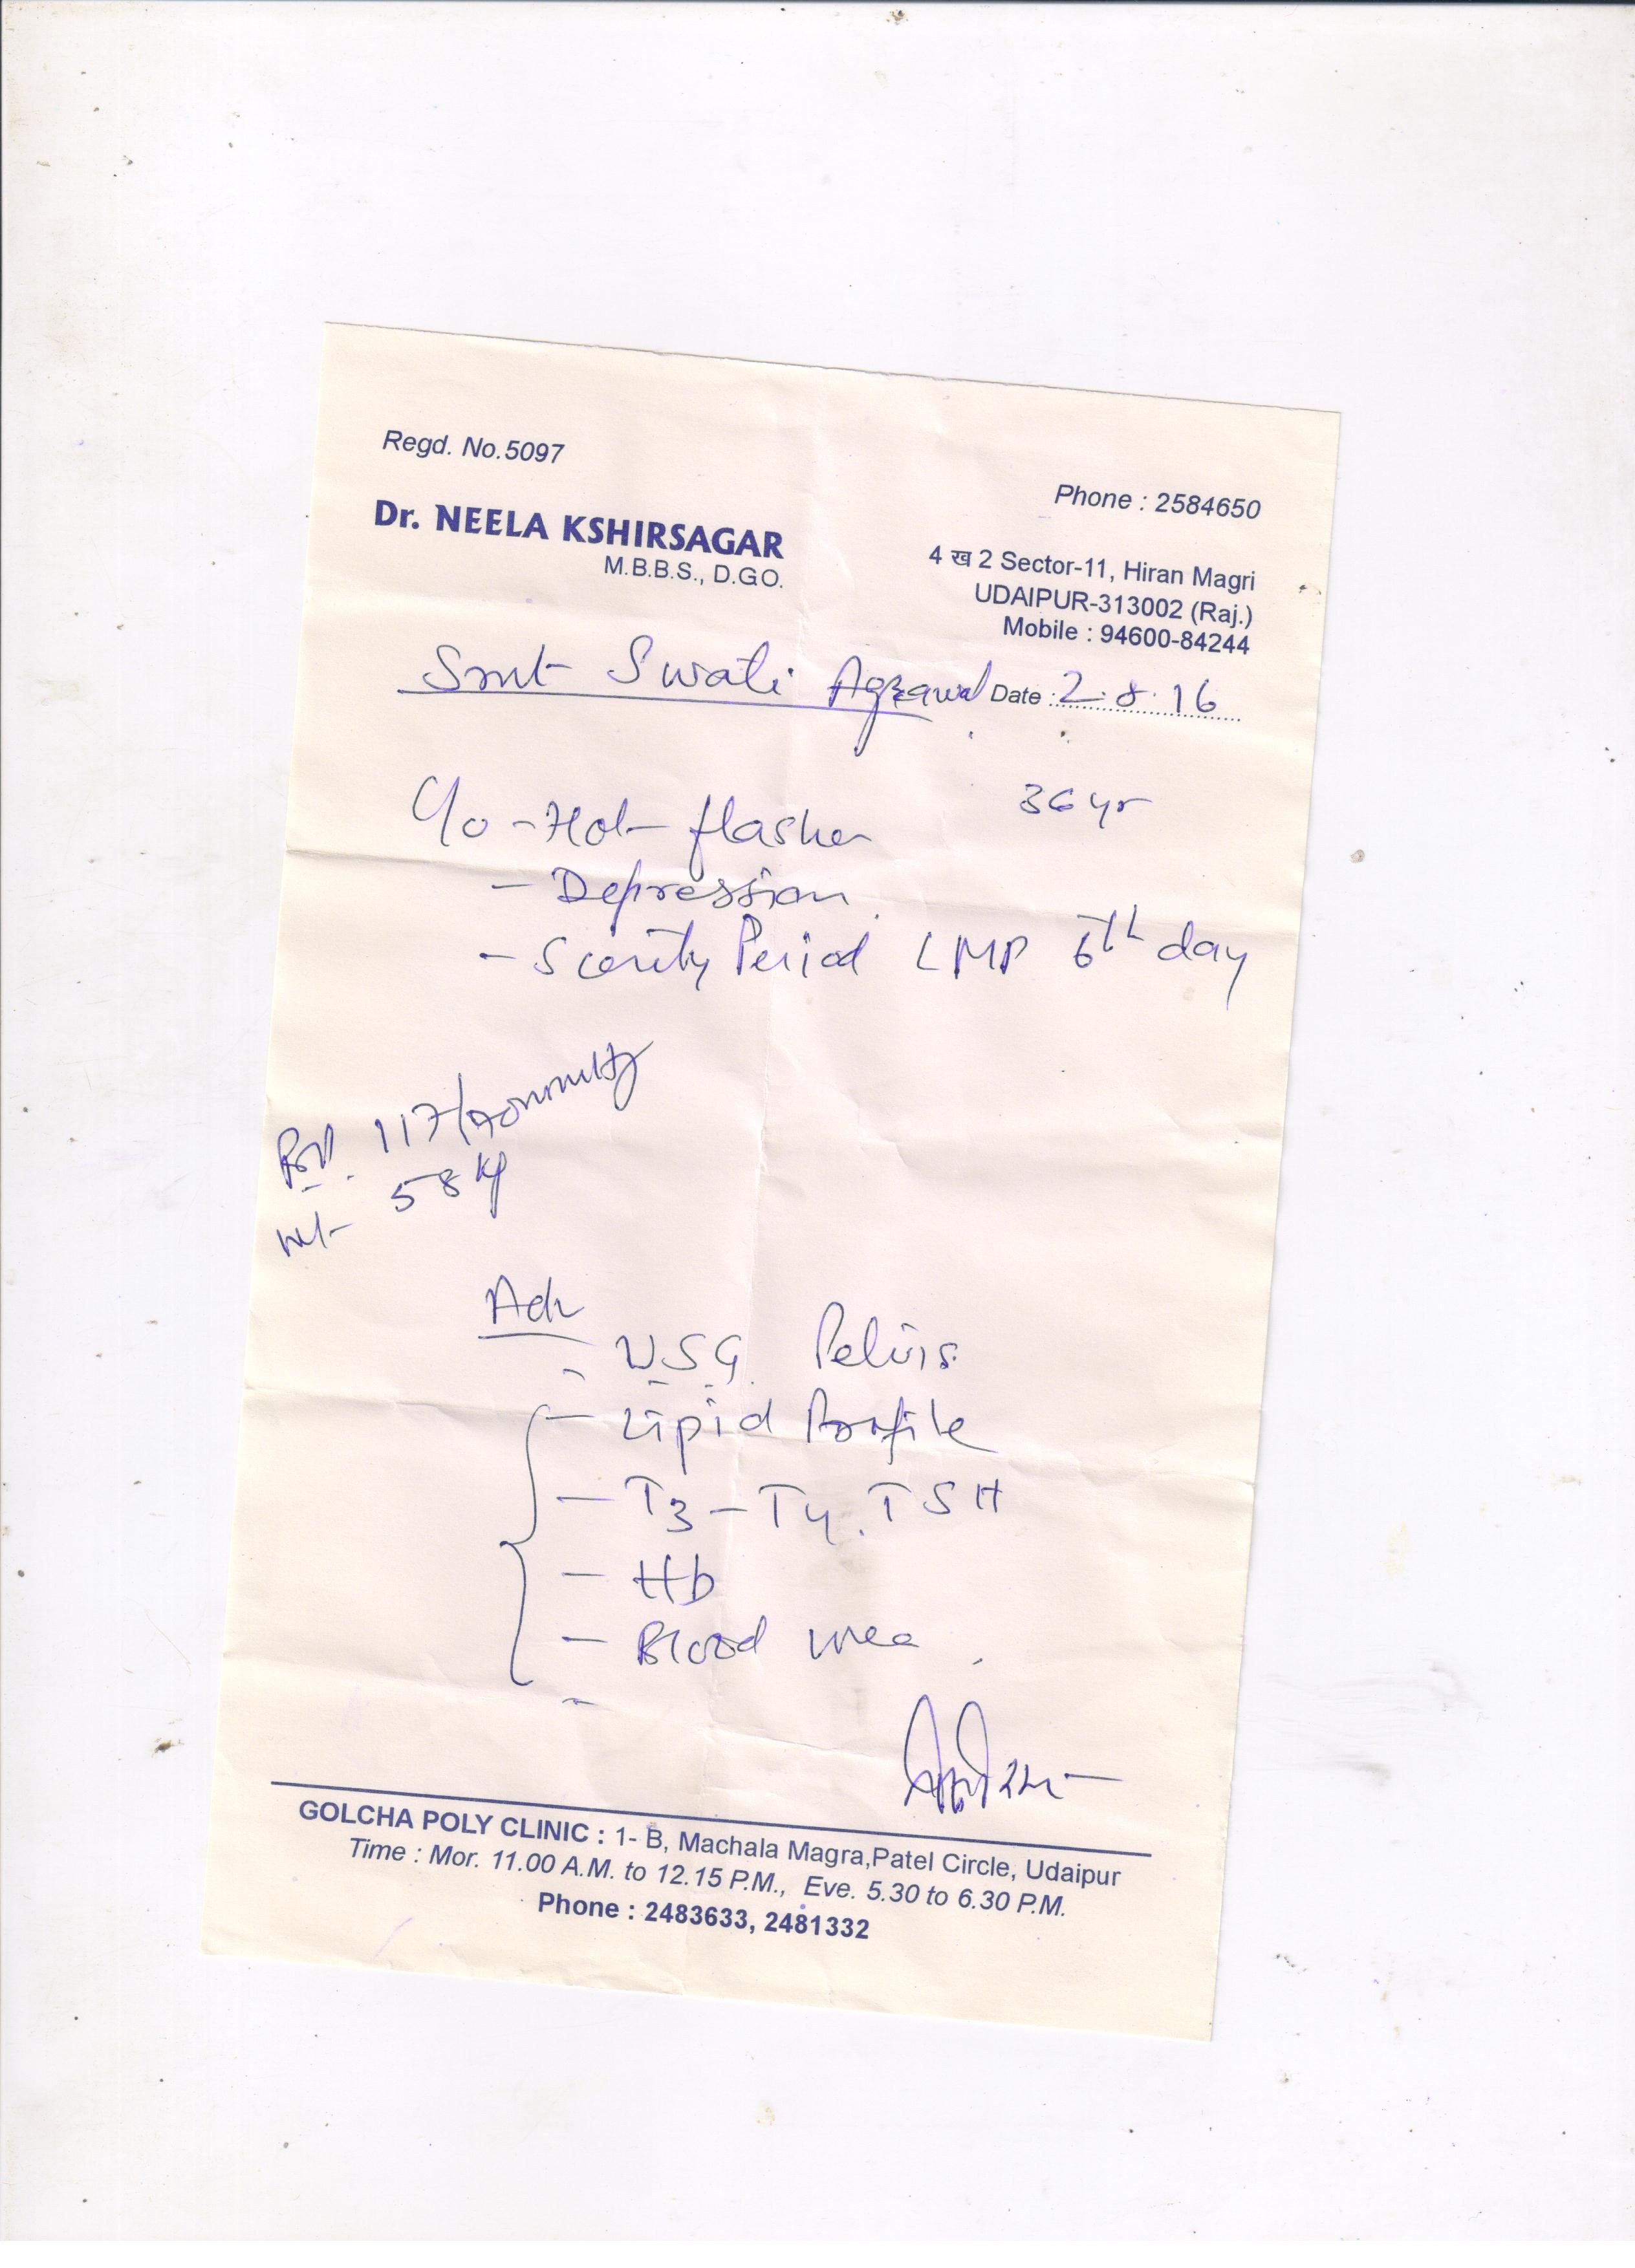 Regd. No.5097
Phone : 2584650
Dr. NEELA KSHIRSAGAR
M.B.B.S., D.GO.
4 ख 2 Sector-11, Hiran Magri
UDAIPUR-313002 (Raj.)
Mobile : 94600-84244
Smt Swati Agrawal Date : 2.8.16
36 yr
C/o - Hot flashes
- Depression
- Scanty Period LMP 6th day
B.P. 117/70 mmHg
Wt- 58 kg
Adv
- USG Pelvis
- Lipid Profile
- T3 - T4. TSH
- Hb
- Blood urea
-
GOLCHA POLY CLINIC : 1- B, Machala Magra,Patel Circle, Udaipur
Time : Mor. 11.00 A.M. to 12.15 P.M., Eve. 5.30 to 6.30 P.M.
Phone : 2483633, 2481332